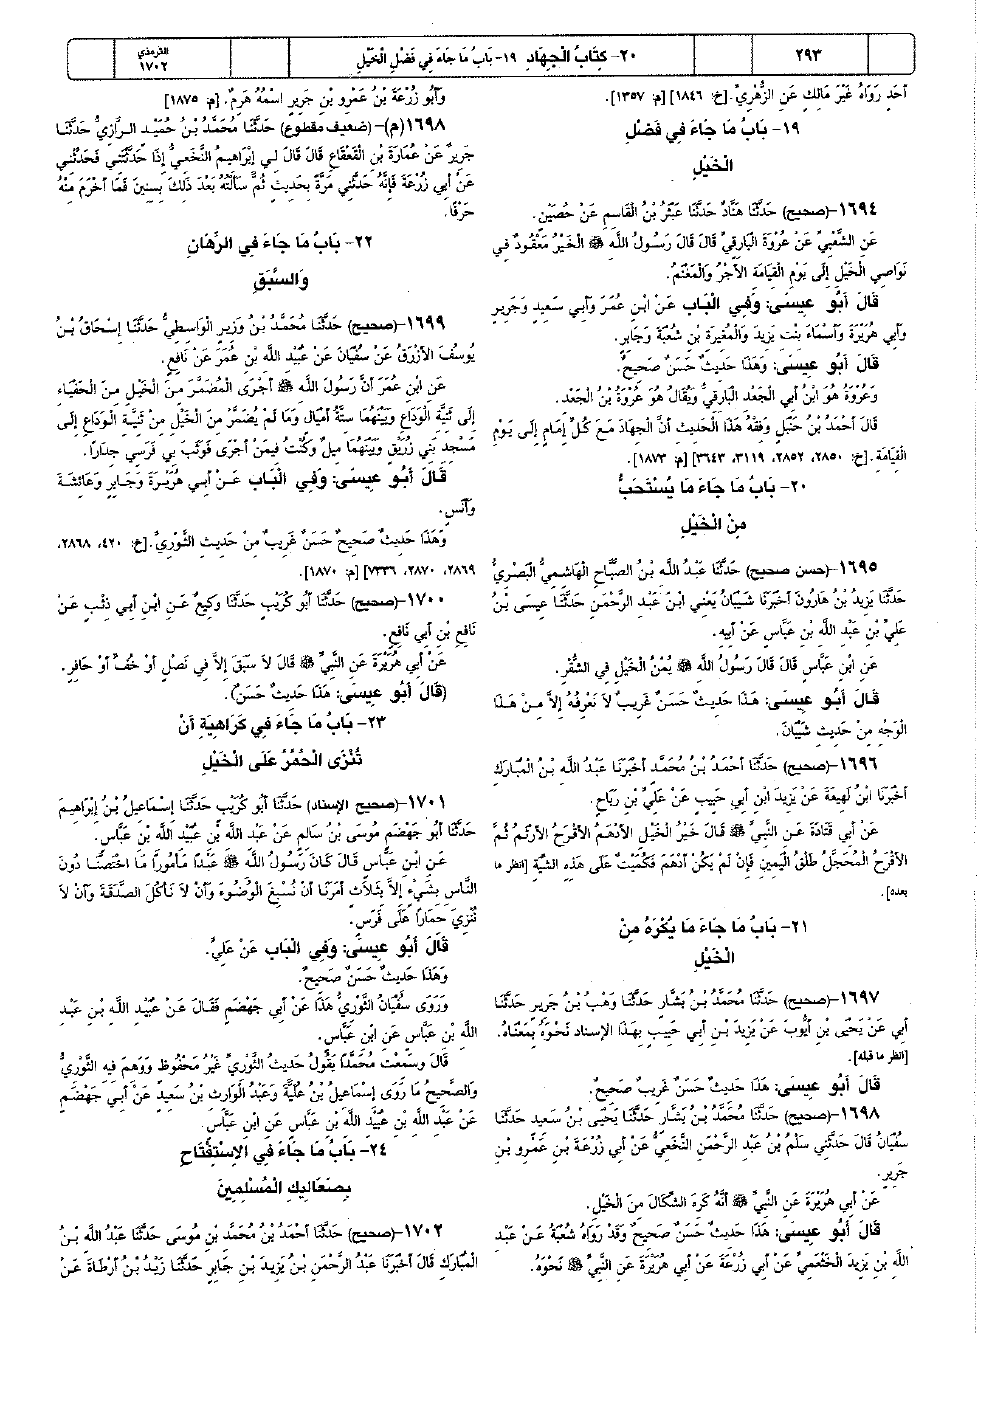 ٢٩٣
٢٠- كِتَابُ الْجِهَادِ ١٩- بَابُ مَا جَاءَ فِي فَضْلِ الْخَيْلِ
الترمذي
١٧٠٢
أَحَد رَوَاهُ غَيْرَ مَالِكٍ عَنِ الزُّهْرِيِّ. [خ: ١٨٤٦] [م: ١٣٥٧].
١٩- بَابُ مَا جَاءَ فِي فَضْلِ
الْخَيْلِ
١٦٩٤-(صحيح) حَدَّثَنَا هَنَّادٌ حَدَّثَنَا عَبْثَرُ بْنُ الْقَاسِمِ عَنْ حُصَيْنٍ.
عَنِ الشَّعْبِيِّ عَنْ عُرْوَةَ الْبَارِقِيِّ قَالَ قَالَ رَسُولُ اللَّهِ ﷺ الْخَيْرُ مَعْقُودٌ فِي
نَوَاصِي الْخَيْلِ إِلَى يَوْمِ الْقِيَامَةِ الأَجْرُ وَالْمَغْنَمُ.
قَالَ أَبُو عِيسَى: وَفِي الْبَابِ عَنْ ابْنِ عُمَرَ وَأَبِي سَعِيدٍ وَجَرِيرٍ
وَأَبِي هُرَيْرَةَ وَأَسْمَاءَ بِنْتِ يَزِيدَ وَالْمُغِيرَةِ بْنِ شُعْبَةَ وَجَابِرٍ.
قَالَ أَبُو عِيسَى: وَهَذَا حَدِيثٌ حَسَنٌ صَحِيحٌ.
وَعُرْوَةُ هُوَ ابْنُ أَبِي الْجَعْدِ الْبَارِقِيُّ وَيُقَالُ هُوَ عُرْوَةُ بْنُ الْجَعْدِ.
قَالَ أَحْمَدُ بْنُ حَنْبَلٍ وَفِقْهُ هَذَا الْحَدِيثِ أَنَّ الْجِهَادَ مَعَ كُلِّ إِمَامٍ إِلَى يَوْمِ
الْقِيَامَةِ. [خ: ٢٨٥٠، ٢٨٥٢، ٣١١٩، ٣٦٤٣] [م: ١٨٧٣].
٢٠- بَابُ مَا جَاءَ مَا يُسْتَحَبُّ
مِنْ الْخَيْلِ
١٦٩٥-(حسن صحيح) حَدَّثَنَا عَبْدُ اللَّهِ بْنُ الصَّبَّاحِ الْهَاشِمِيُّ الْبَصْرِيُّ
حَدَّثَنَا يَزِيدُ بْنُ هَارُونَ أَخْبَرَنَا شَيْبَانُ يَعْنِي ابْنَ عَبْدِ الرَّحْمَنِ حَدَّثَنَا عِيسَى بْنُ
عَلِيِّ بْنِ عَبْدِ اللَّهِ بْنِ عَبَّاسٍ عَنْ أَبِيهِ.
عَنِ ابْنِ عَبَّاسٍ قَالَ قَالَ رَسُولُ اللَّهِ ﷺ يُمْنُ الْخَيْلِ فِي الشُّقْرِ.
قَالَ أَبُو عِيسَى: هَذَا حَدِيثٌ حَسَنٌ غَرِيبٌ لاَ نَعْرِفُهُ إِلاَّ مِنْ هَذَا
الْوَجْهِ مِنْ حَدِيثِ شَيْبَانَ.
١٦٩٦-(صحيح) حَدَّثَنَا أَحْمَدُ بْنُ مُحَمَّدٍ أَخْبَرَنَا عَبْدُ اللَّهِ بْنُ الْمُبَارَكِ
أَخْبَرَنَا ابْنُ لَهِيعَةَ عَنْ يَزِيدَ ابْنِ أَبِي حَبِيبٍ عَنْ عَلِيِّ بْنِ رَبَاحٍ.
عَنْ أَبِي قَتَادَةَ عَنِ النَّبِيِّ ﷺ قَالَ خَيْرُ الْخَيْلِ الأَدْهَمُ الأَقْرَحُ الأَرْثَمُ ثُمَّ
الأَقْرَحُ الْمُحَجَّلُ طَلْقُ الْيَمِينِ فَإِنْ لَمْ يَكُنْ أَدْهَمَ فَكُمَيْتٌ عَلَى هَذِهِ الشِّيَةِ [انظر ما
بعده].
٢١- بَابُ مَا جَاءَ مَا يُكْرَهُ مِنْ
الْخَيْلِ
١٦٩٧-(صحيح) حَدَّثَنَا مُحَمَّدُ بْنُ بَشَّارٍ حَدَّثَنَا وَهْبُ بْنُ جَرِيرٍ حَدَّثَنَا
أَبِي عَنْ يَحْيَى بْنِ أَيُّوبَ عَنْ يَزِيدَ بْنِ أَبِي حَبِيبٍ بِهَذَا الإِسْنَادِ نَحْوَهُ بِمَعْنَاهُ.
[انظر ما قبله].
قَالَ أَبُو عِيسَى: هَذَا حَدِيثٌ حَسَنٌ غَرِيبٌ صَحِيحٌ.
١٦٩٨-(صحيح) حَدَّثَنَا مُحَمَّدُ بْنُ بَشَّارٍ حَدَّثَنَا يَحْيَى بْنُ سَعِيدٍ حَدَّثَنَا
سُفْيَانُ قَالَ حَدَّثَنِي سَلْمُ بْنُ عَبْدِ الرَّحْمَنِ النَّخَعِيُّ عَنْ أَبِي زُرْعَةَ بْنِ عَمْرِو بْنِ
جَرِيرٍ.
عَنْ أَبِي هُرَيْرَةَ عَنِ النَّبِيِّ ﷺ أَنَّهُ كَرِهَ الشِّكَالَ مِنَ الْخَيْلِ.
قَالَ أَبُو عِيسَى: هَذَا حَدِيثٌ حَسَنٌ صَحِيحٌ وَقَدْ رَوَاهُ شُعْبَةُ عَنْ عَبْدِ
اللَّهِ بْنِ يَزِيدَ الْخَثْعَمِيِّ عَنْ أَبِي زُرْعَةَ عَنْ أَبِي هُرَيْرَةَ عَنِ النَّبِيِّ ﷺ نَحْوَهُ.
وَأَبُو زُرْعَةَ بْنُ عَمْرِو بْنِ جَرِيرٍ اسْمُهُ هَرِمٌ. [م: ١٨٧٥]
١٦٩٨(م)-(ضعيف مقطوع) حَدَّثَنَا مُحَمَّدُ بْنُ حُمَيْدٍ الرَّازِيُّ حَدَّثَنَا
جَرِيرٌ عَنْ عُمَارَةَ بْنِ الْقَعْقَاعِ قَالَ قَالَ لِي إِبْرَاهِيمُ النَّخَعِيُّ إِذَا حَدَّثْتَنِي فَحَدِّثْنِي
عَنْ أَبِي زُرْعَةَ فَإِنَّهُ حَدَّثَنِي مَرَّةً بِحَدِيثٍ ثُمَّ سَأَلْتُهُ بَعْدَ ذَلِكَ بِسِنِينَ فَمَا أَخْرَمَ مِنْهُ
حَرْفًا.
٢٢- بَابُ مَا جَاءَ فِي الرِّهَانِ
وَالسَّبَقِ
١٦٩٩-(صحيح) حَدَّثَنَا مُحَمَّدُ بْنُ وَزِيرٍ الْوَاسِطِيُّ حَدَّثَنَا إِسْحَاقُ بْنُ
يُوسُفَ الأَزْرَقُ عَنْ سُفْيَانَ عَنْ عُبَيْدِ اللَّهِ بْنِ عُمَرَ عَنْ نَافِعٍ.
عَنِ ابْنِ عُمَرَ أَنَّ رَسُولَ اللَّهِ ﷺ أَجْرَى الْمُضَمَّرَ مِنَ الْخَيْلِ مِنَ الْحَفْيَاءِ
إِلَى ثَنِيَّةِ الْوَدَاعِ وَبَيْنَهُمَا سِتَّةُ أَمْيَالٍ وَمَا لَمْ يُضَمَّرْ مِنَ الْخَيْلِ مِنْ ثَنِيَّةِ الْوَدَاعِ إِلَى
مَسْجِدِ بَنِي زُرَيْقٍ وَبَيْنَهُمَا مِيلٌ وَكُنْتُ فِيمَنْ أَجْرَى فَوَثَبَ بِي فَرَسِي جِدَارًا.
قَالَ أَبُو عِيسَى: وَفِي الْبَابِ عَنْ أَبِي هُرَيْرَةَ وَجَابِرٍ وَعَائِشَةَ
وَأَنَسٍ.
وَهَذَا حَدِيثٌ صَحِيحٌ حَسَنٌ غَرِيبٌ مِنْ حَدِيثِ الثَّوْرِيِّ. [خ: ٤٢٠، ٢٨٦٨،
٢٨٦٩، ٢٨٧٠، ٧٣٣٦] [م: ١٨٧٠].
١٧٠٠-(صحيح) حَدَّثَنَا أَبُو كُرَيْبٍ حَدَّثَنَا وَكِيعٌ عَنِ ابْنِ أَبِي ذِئْبٍ عَنْ
نَافِعِ بْنِ أَبِي نَافِعٍ.
عَنْ أَبِي هُرَيْرَةَ عَنِ النَّبِيِّ ﷺ قَالَ لاَ سَبَقَ إِلاَّ فِي نَصْلٍ أَوْ خُفٍّ أَوْ حَافِرٍ.
(قَالَ أَبُو عِيسَى: هَذَا حَدِيثٌ حَسَنٌ).
٢٣- بَابُ مَا جَاءَ فِي كَرَاهِيَةِ أَنْ
تُنْزَى الْحُمُرُ عَلَى الْخَيْلِ
١٧٠١-(صحيح الإسناد) حَدَّثَنَا أَبُو كُرَيْبٍ حَدَّثَنَا إِسْمَاعِيلُ بْنُ إِبْرَاهِيمَ
حَدَّثَنَا أَبُو جَهْضَمٍ مُوسَى بْنُ سَالِمٍ عَنْ عَبْدِ اللَّهِ بْنِ عُبَيْدِ اللَّهِ بْنِ عَبَّاسٍ.
عَنِ ابْنِ عَبَّاسٍ قَالَ كَانَ رَسُولُ اللَّهِ ﷺ عَبْدًا مَأْمُورًا مَا اخْتَصَّنَا دُونَ
النَّاسِ بِشَيْءٍ إِلاَّ بِثَلاَثٍ أَمَرَنَا أَنْ نُسْبِغَ الْوُضُوءَ وَأَنْ لاَ نَأْكُلَ الصَّدَقَةَ وَأَنْ لاَ
نُنْزِيَ حِمَارًا عَلَى فَرَسٍ.
قَالَ أَبُو عِيسَى: وَفِي الْبَابِ عَنْ عَلِيٍّ.
وَهَذَا حَدِيثٌ حَسَنٌ صَحِيحٌ.
وَرَوَى سُفْيَانُ الثَّوْرِيُّ هَذَا عَنْ أَبِي جَهْضَمٍ فَقَالَ عَنْ عُبَيْدِ اللَّهِ بْنِ عَبْدِ
اللَّهِ بْنِ عَبَّاسٍ عَنِ ابْنِ عَبَّاسٍ.
قَالَ وَسَمِعْتُ مُحَمَّدًا يَقُولُ حَدِيثُ الثَّوْرِيِّ غَيْرُ مَحْفُوظٍ وَوَهِمَ فِيهِ الثَّوْرِيُّ
وَالصَّحِيحُ مَا رَوَى إِسْمَاعِيلُ بْنُ عُلَيَّةَ وَعَبْدُ الْوَارِثِ بْنُ سَعِيدٍ عَنْ أَبِي جَهْضَمٍ
عَنْ عَبْدِ اللَّهِ بْنِ عُبَيْدِ اللَّهِ بْنِ عَبَّاسٍ عَنِ ابْنِ عَبَّاسٍ.
٢٤- بَابُ مَا جَاءَ فِي الاِسْتِفْتَاحِ
بِصَعَالِيكِ الْمُسْلِمِينَ
١٧٠٢-(صحيح) حَدَّثَنَا أَحْمَدُ بْنُ مُحَمَّدِ بْنِ مُوسَى حَدَّثَنَا عَبْدُ اللَّهِ بْنُ
الْمُبَارَكِ قَالَ أَخْبَرَنَا عَبْدُ الرَّحْمَنِ بْنُ يَزِيدَ بْنِ جَابِرٍ حَدَّثَنَا زَيْدُ بْنُ أَرْطَاةَ عَنْ